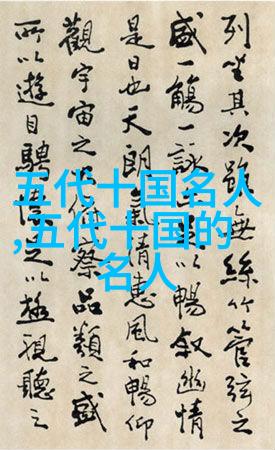 五代十国名人
,五代十国的
名人
列坐其次雖無絲竹管弦之
盛一觴一詠以暢叙幽情
是日也天朗氣清惠風和暢仰
觀宇宙之俯察品類之盛
所以遊目騁懷足以極視聽之